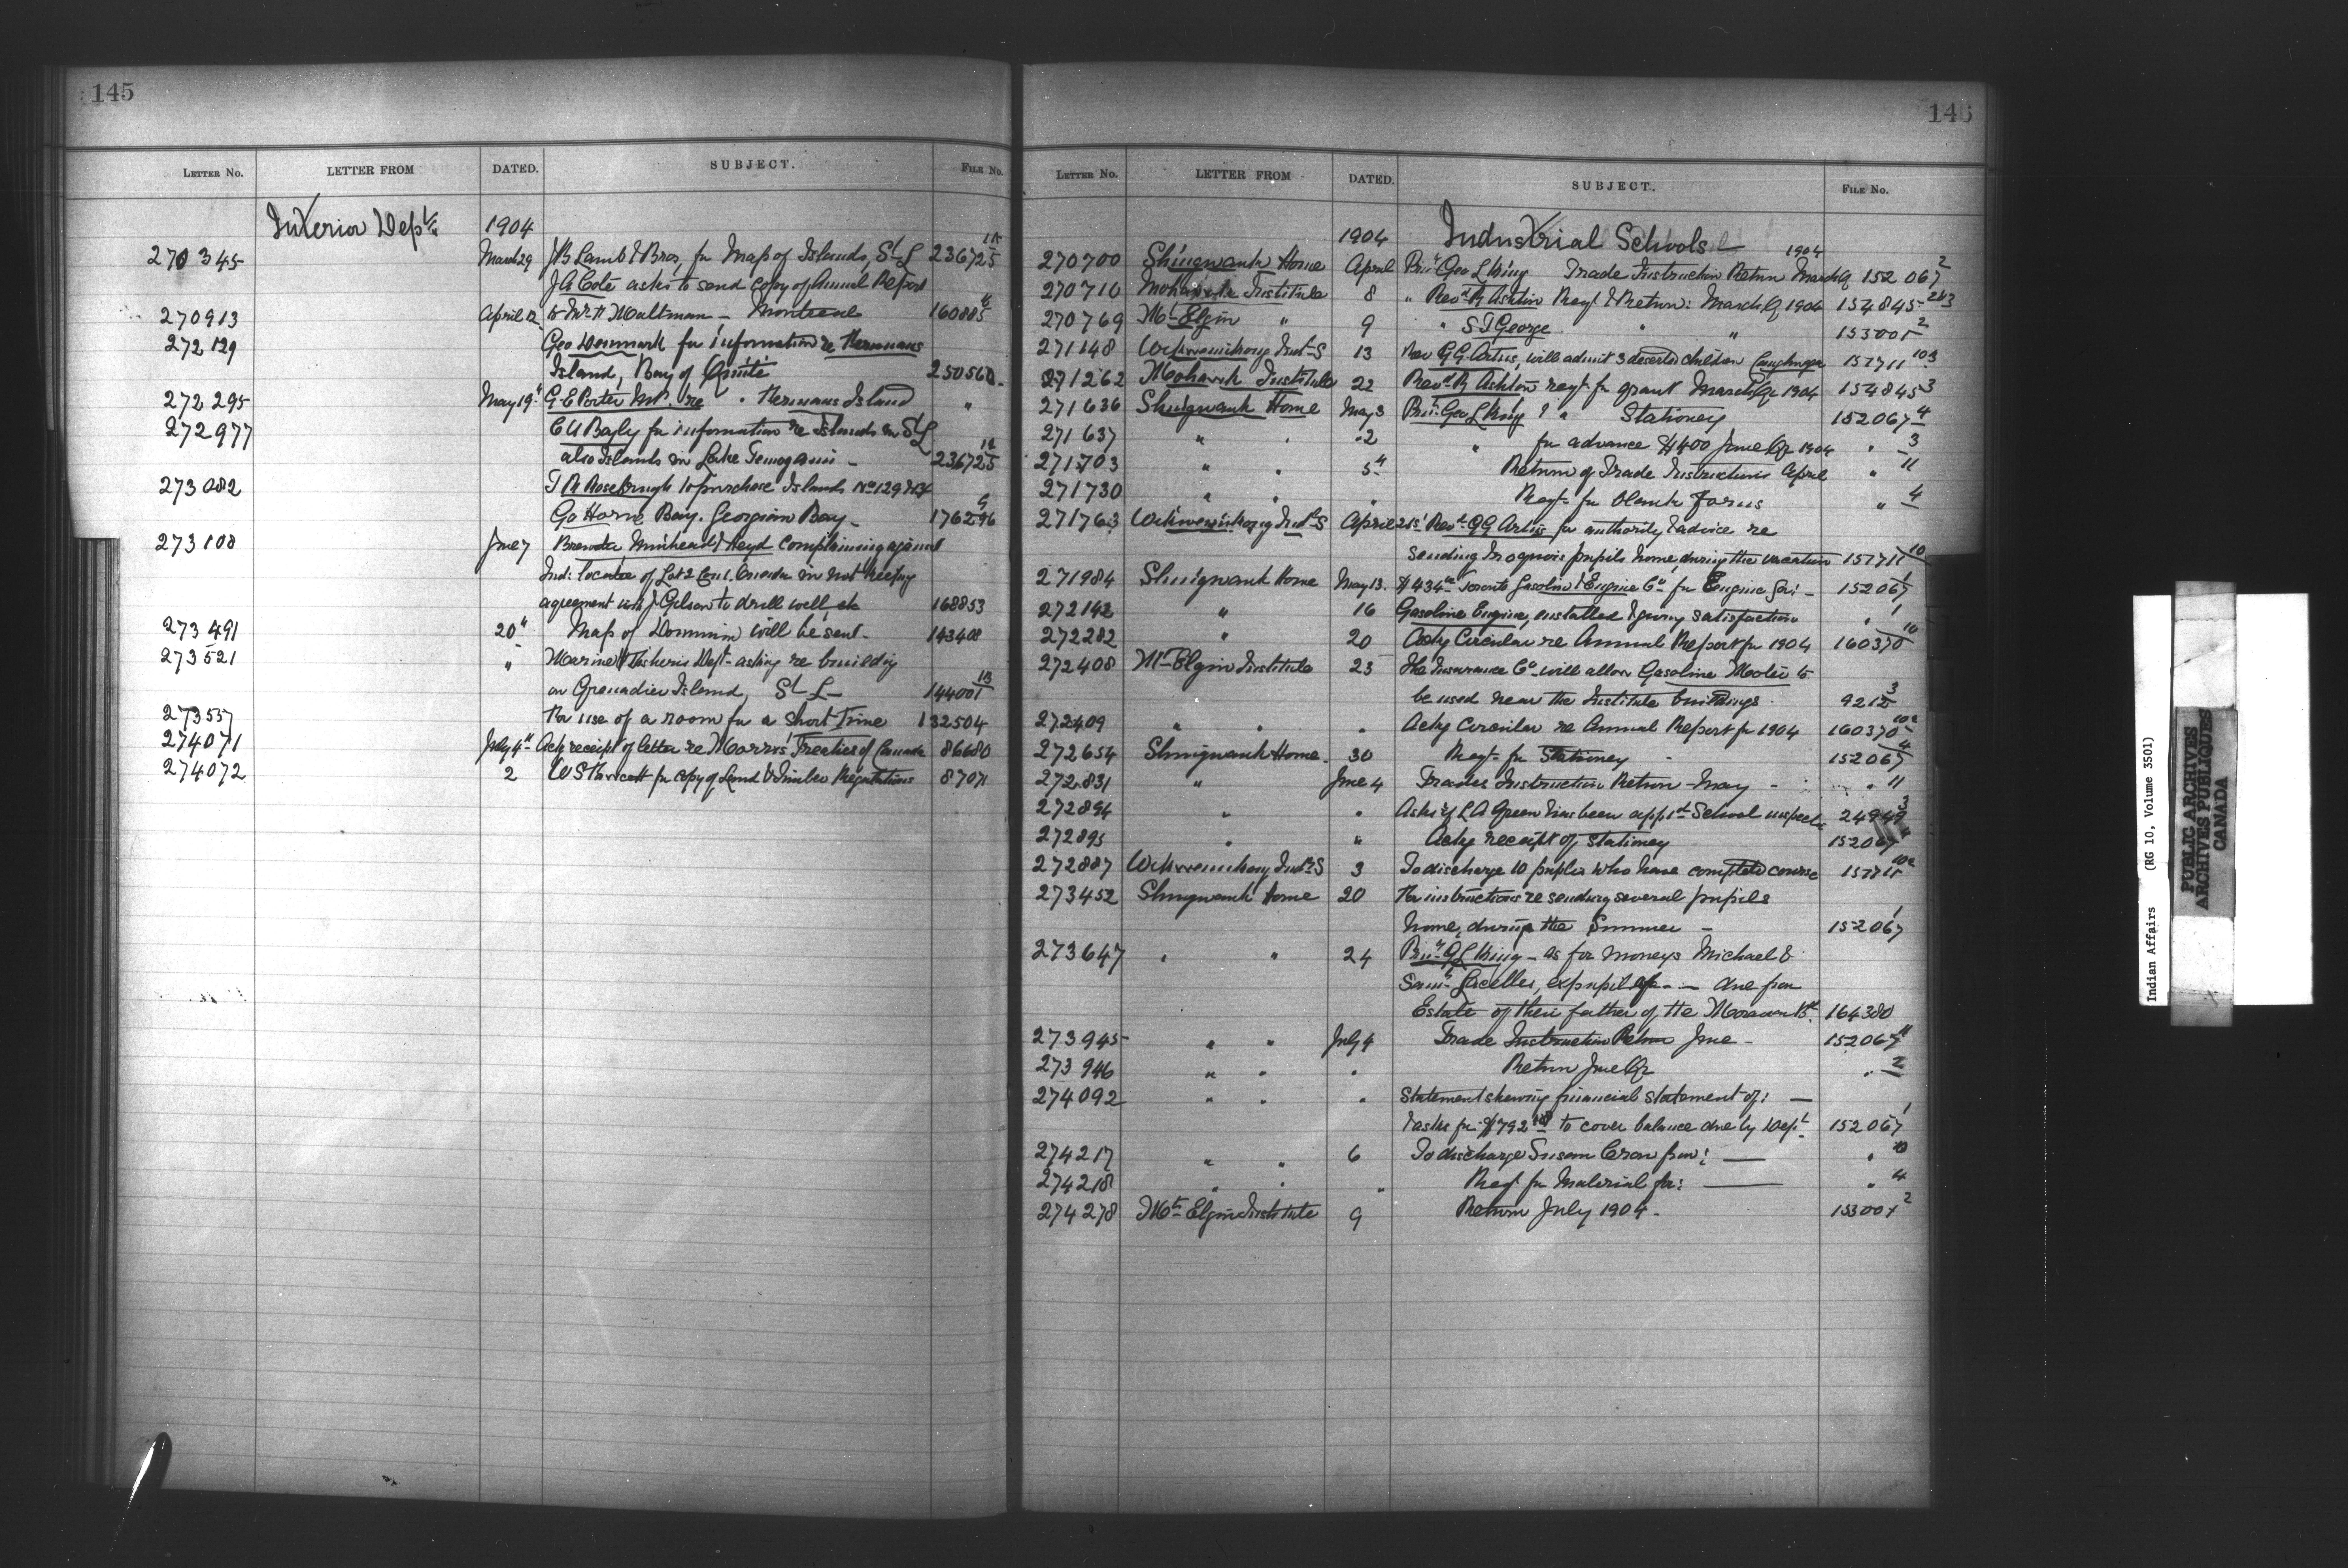 145
LETTER NO. LETTER FROM DATED. SUBJECT. FILE NO.
Interior Dept. 1904
270345 March 29 J B Lamb & Bros, for Map of Islands, St L 236725 1A
J A Coté asks to send copy of Annual Report
270913 April 12 Montreal 160885
272129 Geo Denmark for information re Hermans
Island, Bay of Quinte 250560
272295 May 19" G E Porter M.P. re " Hermans Island "
272977 C U Bagly for information re Islands in St L
also Islands in Lake Temogami - 236725 1A
273082 to purchase Islands No 129
Go Home Bay. Georgian Bay - 176296
273108 June 7 Brewster, Muirhead & Heyd complaining against
Ind: locatee of Lot 2 Con 1. Oneida in not keeping
agreement with J Gilson to drill well, etc 168853
273491 20" Map of Dominion will be sent - 143408
273521 " Marine & Fisheries Dept- asking re building
on Grenadier Island, St L - 144001 1B
273557 For use of a room for a short Time 132504
274071 July 4" Ack receipt of letter re Morris' Treaties of Canada 86680
274072 2 for copy of Land & Timber Regulations 87071
146
LETTER NO. LETTER FROM DATED. SUBJECT. FILE NO.
1904 Industrial Schools
270700 Shingwauk Home April Prin: Geo L King Trade Instruction Return March Qr 1904 152067 2
270710 Mohawk Institute 8 " Revd R Ashton Reqt & Return: March Qr 1904 154845 2&3
270769 Mt Elgin " 9 " S T George " " 153001 2
271148 Wikwemikong Ind-S 13 Rev G G Artus, will admit 3 deserted children Caughnaga 157711 10.3
271262 Mohawk Institute 22 Revd R Ashton reqt for grant March Qr 1904 154845 3
271636 Shingwauk Home May 3 Prin: Geo L King " Stationery 152067 4
271637 " " 2 " for advance $400 June Qr 1904 " 3
271703 " " 5" Return of Trade Instructions April " 11
271730 " " " Reqt- for blank forms " 4
271763 Wikwemikong Ind-S April 21st Revd G G Artus for authority & advice re
sending Iroquois pupils home, during the vacation 157711 10
271984 Shingwauk Home May 13. $434 Toronto Gasoline & Engine Co for Engine for: - 152067 1
272142 " 16 Gasoline Engine, installed & giving satisfaction " 1
272282 " 20 Ackg Circular re Annual Report for 1904 160370 10
272408 Mt Elgin Institute 23 The Insurance Co will allow Gasoline Motor to
be used near the Institute buildings. 9212 3
272409 " " " Ackg Circular re Annual Report for 1904 160370 10a
272654 Shingwauk Home. 30 Reqt- for Stationery - 152067 4
272831 " June 4 Trades Instruction Return May - " 11
272894 " " Asks if L A Green has been appd School inspector 24949 3
272895 " " Ackg receipt of Stationery 152067 4
272887 Wikwemikong Ind-S 3 To discharge 10 pupils who have completed course 157711 10a
273452 Shingwauk Home 20 For instructions re sending several pupils
home, during the Summer - 152067 1
273647 " " 24 Prin: G L King - as for moneys Michael &
Saml , expupil of - - due from
Estate of their father of the Moravian Bd. 164380
273945 " " July 4 Trade Instruction Return June - 152067 11
273946 " " " Return June Qr " 2
274092 " " " Statement shewing financial statement of: -
& asks for $792 to cover balance due by Dept- 152067 1
274217 " " 6 To discharge Susan Cron from: - " 10
274218 " " " Reqt for Material for: - " 4
274278 Mt Elgin Institute 9 Return July 1904 - 153001 2
Indian Affairs (RG 10, Volume 3501)
PUBLIC ARCHIVES
ARCHIVES PUBLIQUES
CANADA